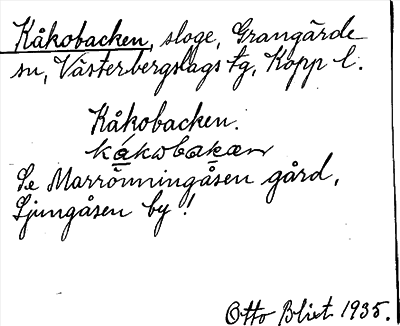 Kåkobacken, sloge, Grangärde
sn, Västerbergslags tg, Kopp l.
Kåkobacken.
kákobakæn
Se Marrönningåsen gård,
Ljungåsen by!
Otto Blixt 1935.